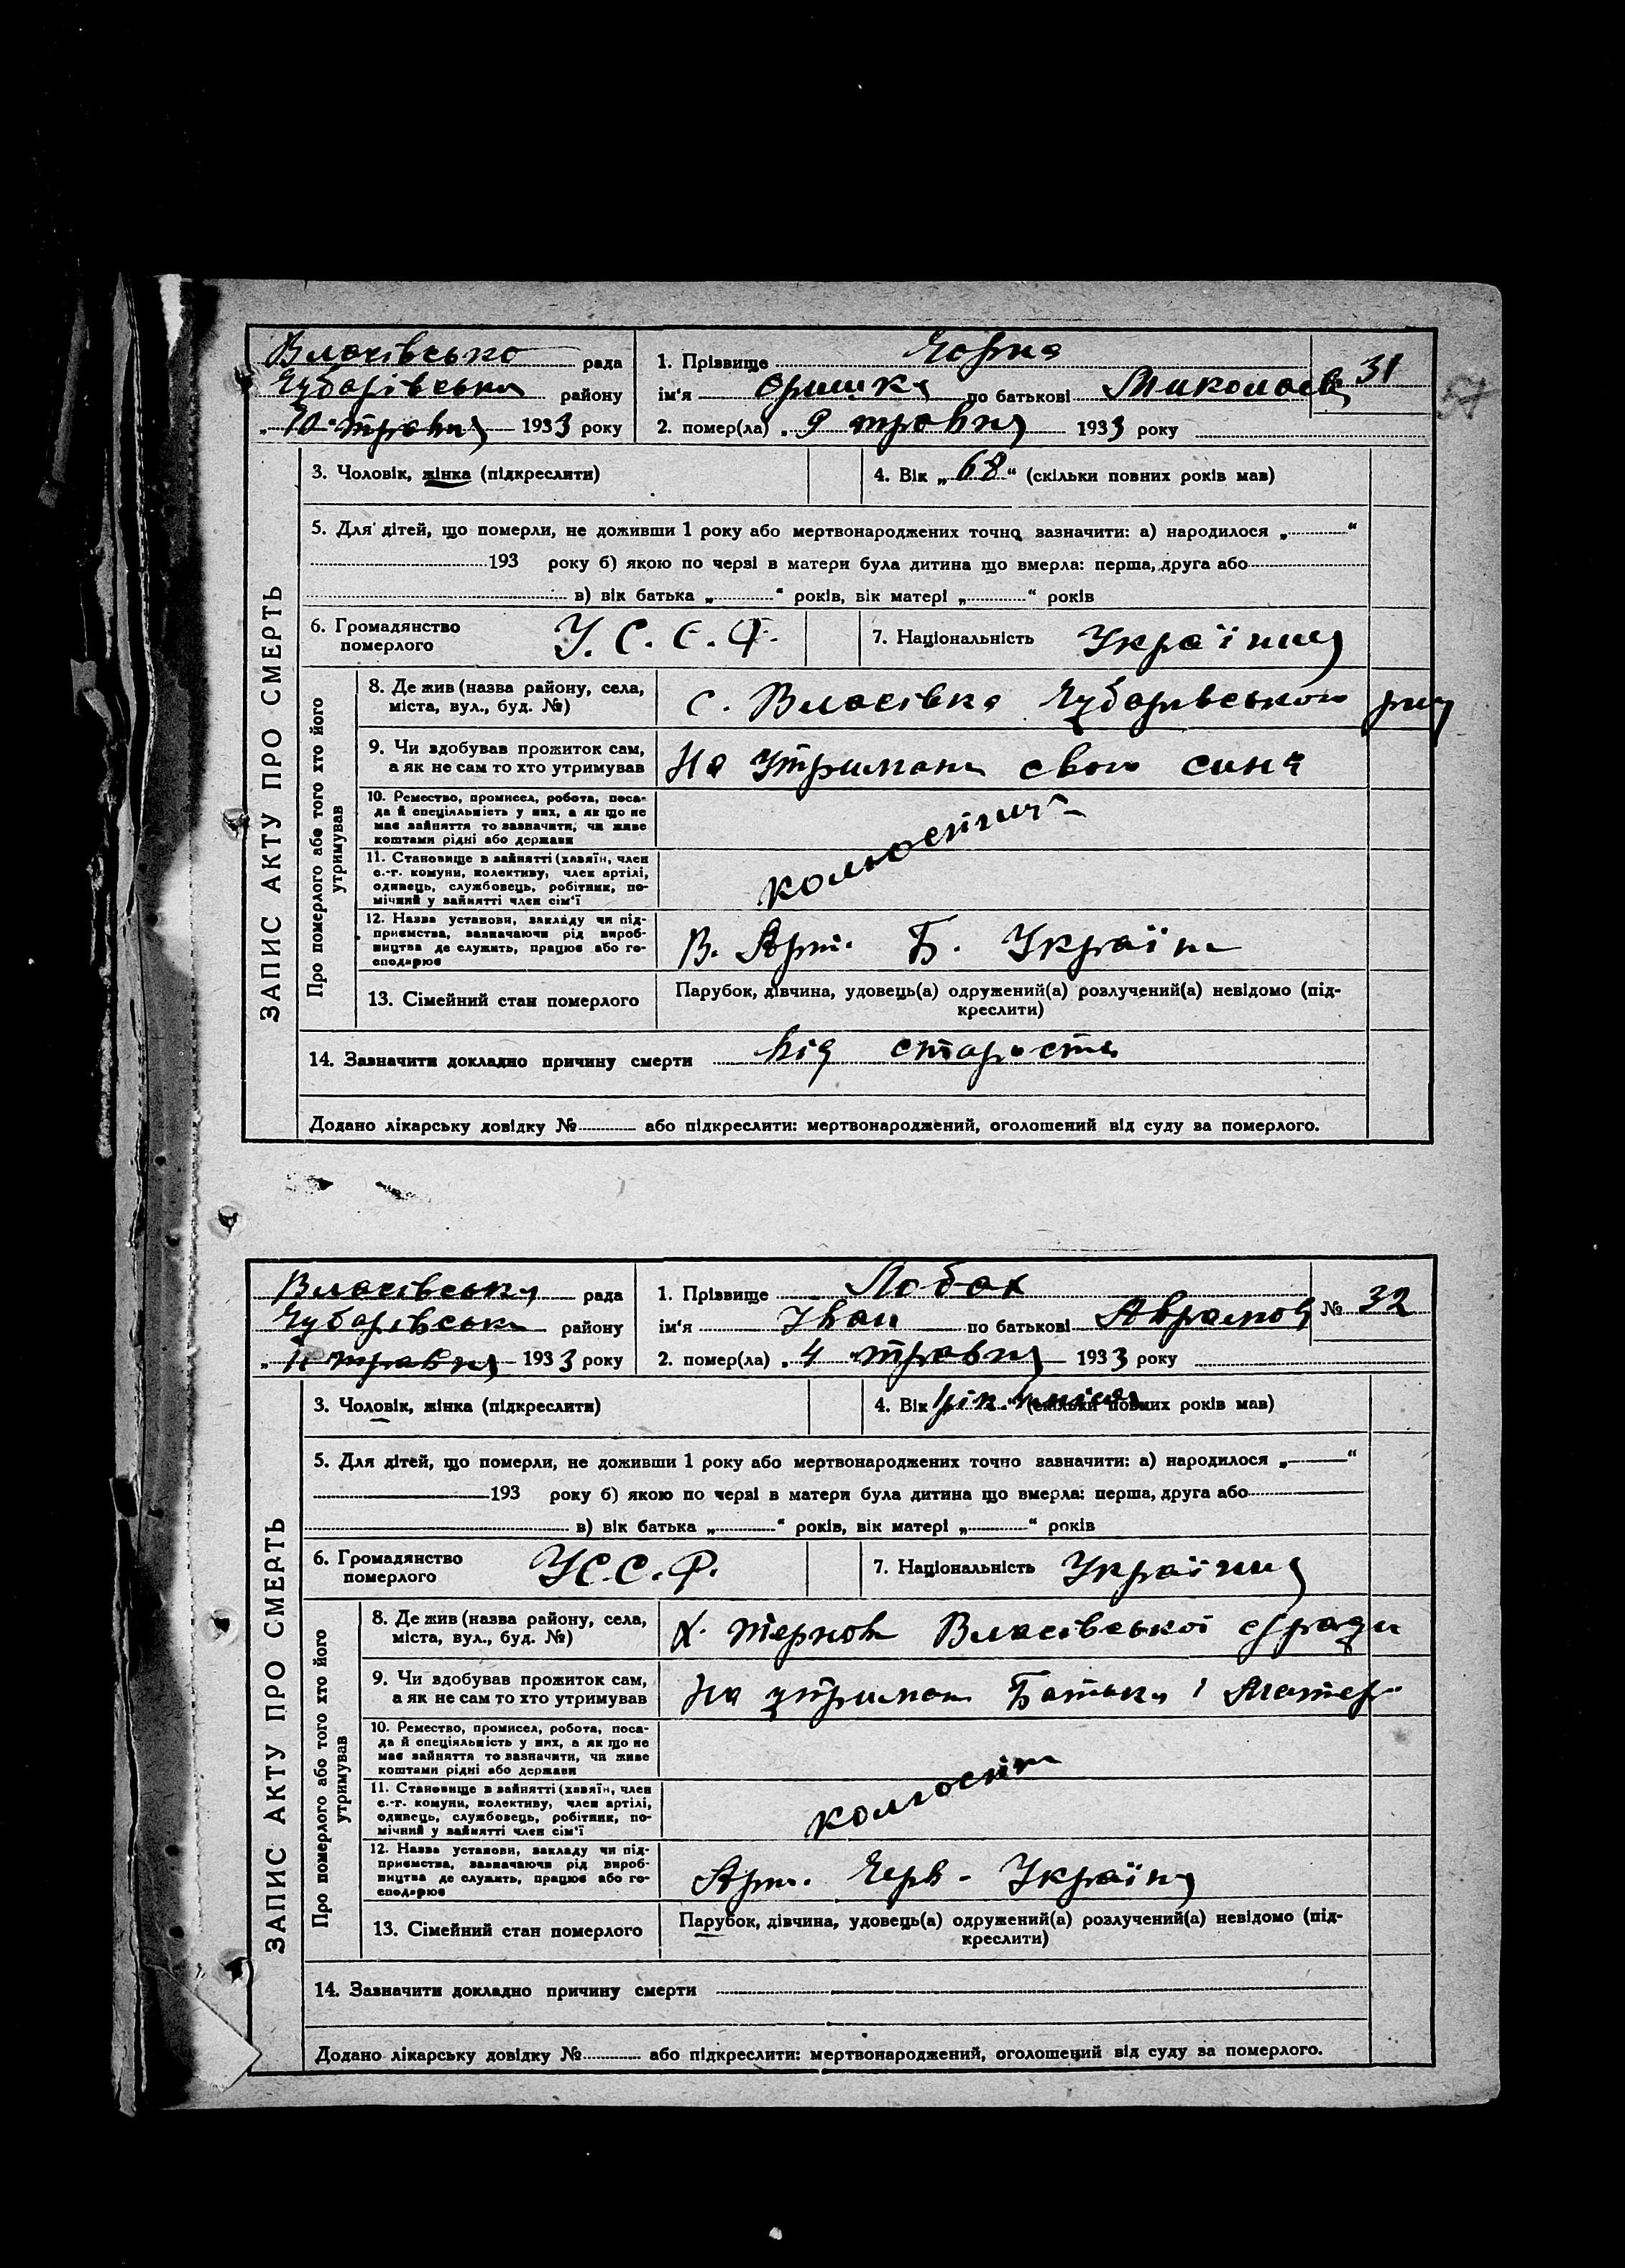 ЗАПИС АКТУ ПРО СМЕРТЬ
Власівсько рада
Чубарівська району
„10" травня 1933 року
1. Прізвище Чорна
ім'я Оришка по батькові Миколаєв
31
2. помер(ла) „9 травня 1933 року
3. Чоловік, жінка (підкреслити)
4. Вік „68" (скільки повних років мав)
5. Для дітей, що померли, не доживши 1 року або мертвонароджених точно зазначити: а) народилося „ "
193 року б) якою по черзі в матери була дитина що вмерла: перша, друга або
в) вік батька „ " років, вік матері „ " років
6. Громадянство померлого У. С. С. Ф.
7. Національність Україниця
Про померлого або того хто його утримував
8. Де жив (назва району, села,
міста, вул., буд. №) с. Власівка Чубарівського
9. Чи здобував прожиток сам,
а як не сам то хто утримував На утриман свого сина
10. Ремество, промисел, робота, поса-
да й спеціяльність у них, а як що не
має зайняття то зазначити, чи живе
коштами рідні або держави
11. Становище в зайнятті (хазяїн, член
с.-г. комуни, колективу, член артілі,
одинець, службовець, робітник, по-
мічний у зайнятті член сім'ї
12. Назва установи, закладу чи під-
приємства, зазначаючи рід вироб-
ництва де служить, працює або го-
сподарює В. Арт. Б. Україн
13. Сімейний стан померлого
Парубок, дівчина, удовець(а) одружений(а) розлучений(а) невідомо (під-
креслити)
14. Зазначити докладно причину смерти від старости
Додано лікарську довідку № або підкреслити: мертвонароджений, оголошений від суду за померлого.
ЗАПИС АКТУ ПРО СМЕРТЬ
Власівська рада
Чубарівська району
травня 1933 року
1. Прізвище Лобах
ім'я Іван по батькові Аврамов
№ 32
2. помер(ла) „4 травня 1933 року
3. Чоловік, жінка (підкреслити)
4. Вік (скільки повних років мав)
5. Для дітей, що померли, не доживши 1 року або мертвонароджених точно зазначити: а) народилося „ "
193 року б) якою по черзі в матери була дитина що вмерла: перша, друга або
в) вік батька „ " років, вік матері „ " років
6. Громадянство померлого УС.С.Ф.
7. Національність Україниц
Про померлого або того хто його утримував
8. Де жив (назва району, села,
міста, вул., буд. №) Х. Тернов Власівської с/ради
9. Чи здобував прожиток сам,
а як не сам то хто утримував На утриман Батька і Матер
10. Ремество, промисел, робота, поса-
да й спеціяльність у них, а як що не
має зайняття то зазначити, чи живе
коштами рідні або держави
11. Становище в зайнятті (хазяїн, член
с.-г. комуни, колективу, член артілі,
одинець, службовець, робітник, по-
мічний у зайнятті член сім'ї
колгоспн
12. Назва установи, закладу чи під-
приємства, зазначаючи рід вироб-
ництва де служить, працює або го-
сподарює Арт. Черв- Україна
13. Сімейний стан померлого
Парубок, дівчина, удовець(а) одружений(а) розлучений(а) невідомо (під-
креслити)
14. Зазначити докладно причину смерти
Додано лікарську довідку № або підкреслити: мертвонароджений, оголошений від суду за померлого.